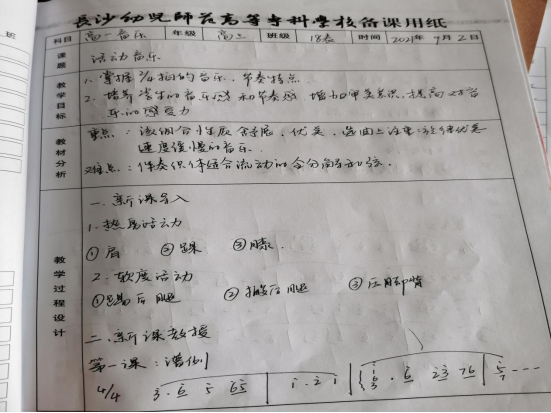 长沙幼儿师范高等专科学校备课用纸
科目 高一音乐 年级 高三 班级 18表 时间 2021年9月2日
课题 活动音乐
教学目标
1. 掌握2/4拍的音乐、节奏特点
2. 培养学生的音乐感和节奏感，增加审美意识，提高对音乐的感受力
教材分析
重点：该组合性质舒展，优美，选曲上注重旋律优美
速度缓慢的音乐.
难点：伴奏织体适合流动的全分解和弦.
教学过程设计
一、新课导入
1. 热身活动
①肩 ②踝 ③膝.
2. 软度活动
①踢后腿 ②搬后腿 ③压脚背
二、新课教授
第一课：谱例
4/4 3·6 5 65 | 1·2 1